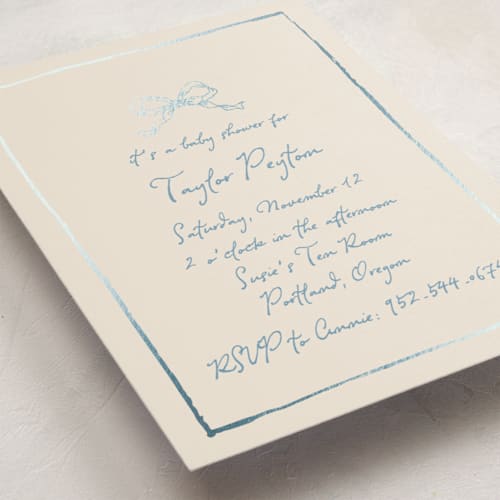 it's a baby shower for
Taylor Peyton
Saturday, November 12
2 o'clock in the afternoon
Susie's Tea Room
Portland, Oregon
RSVP to Annie: 952.544.0674